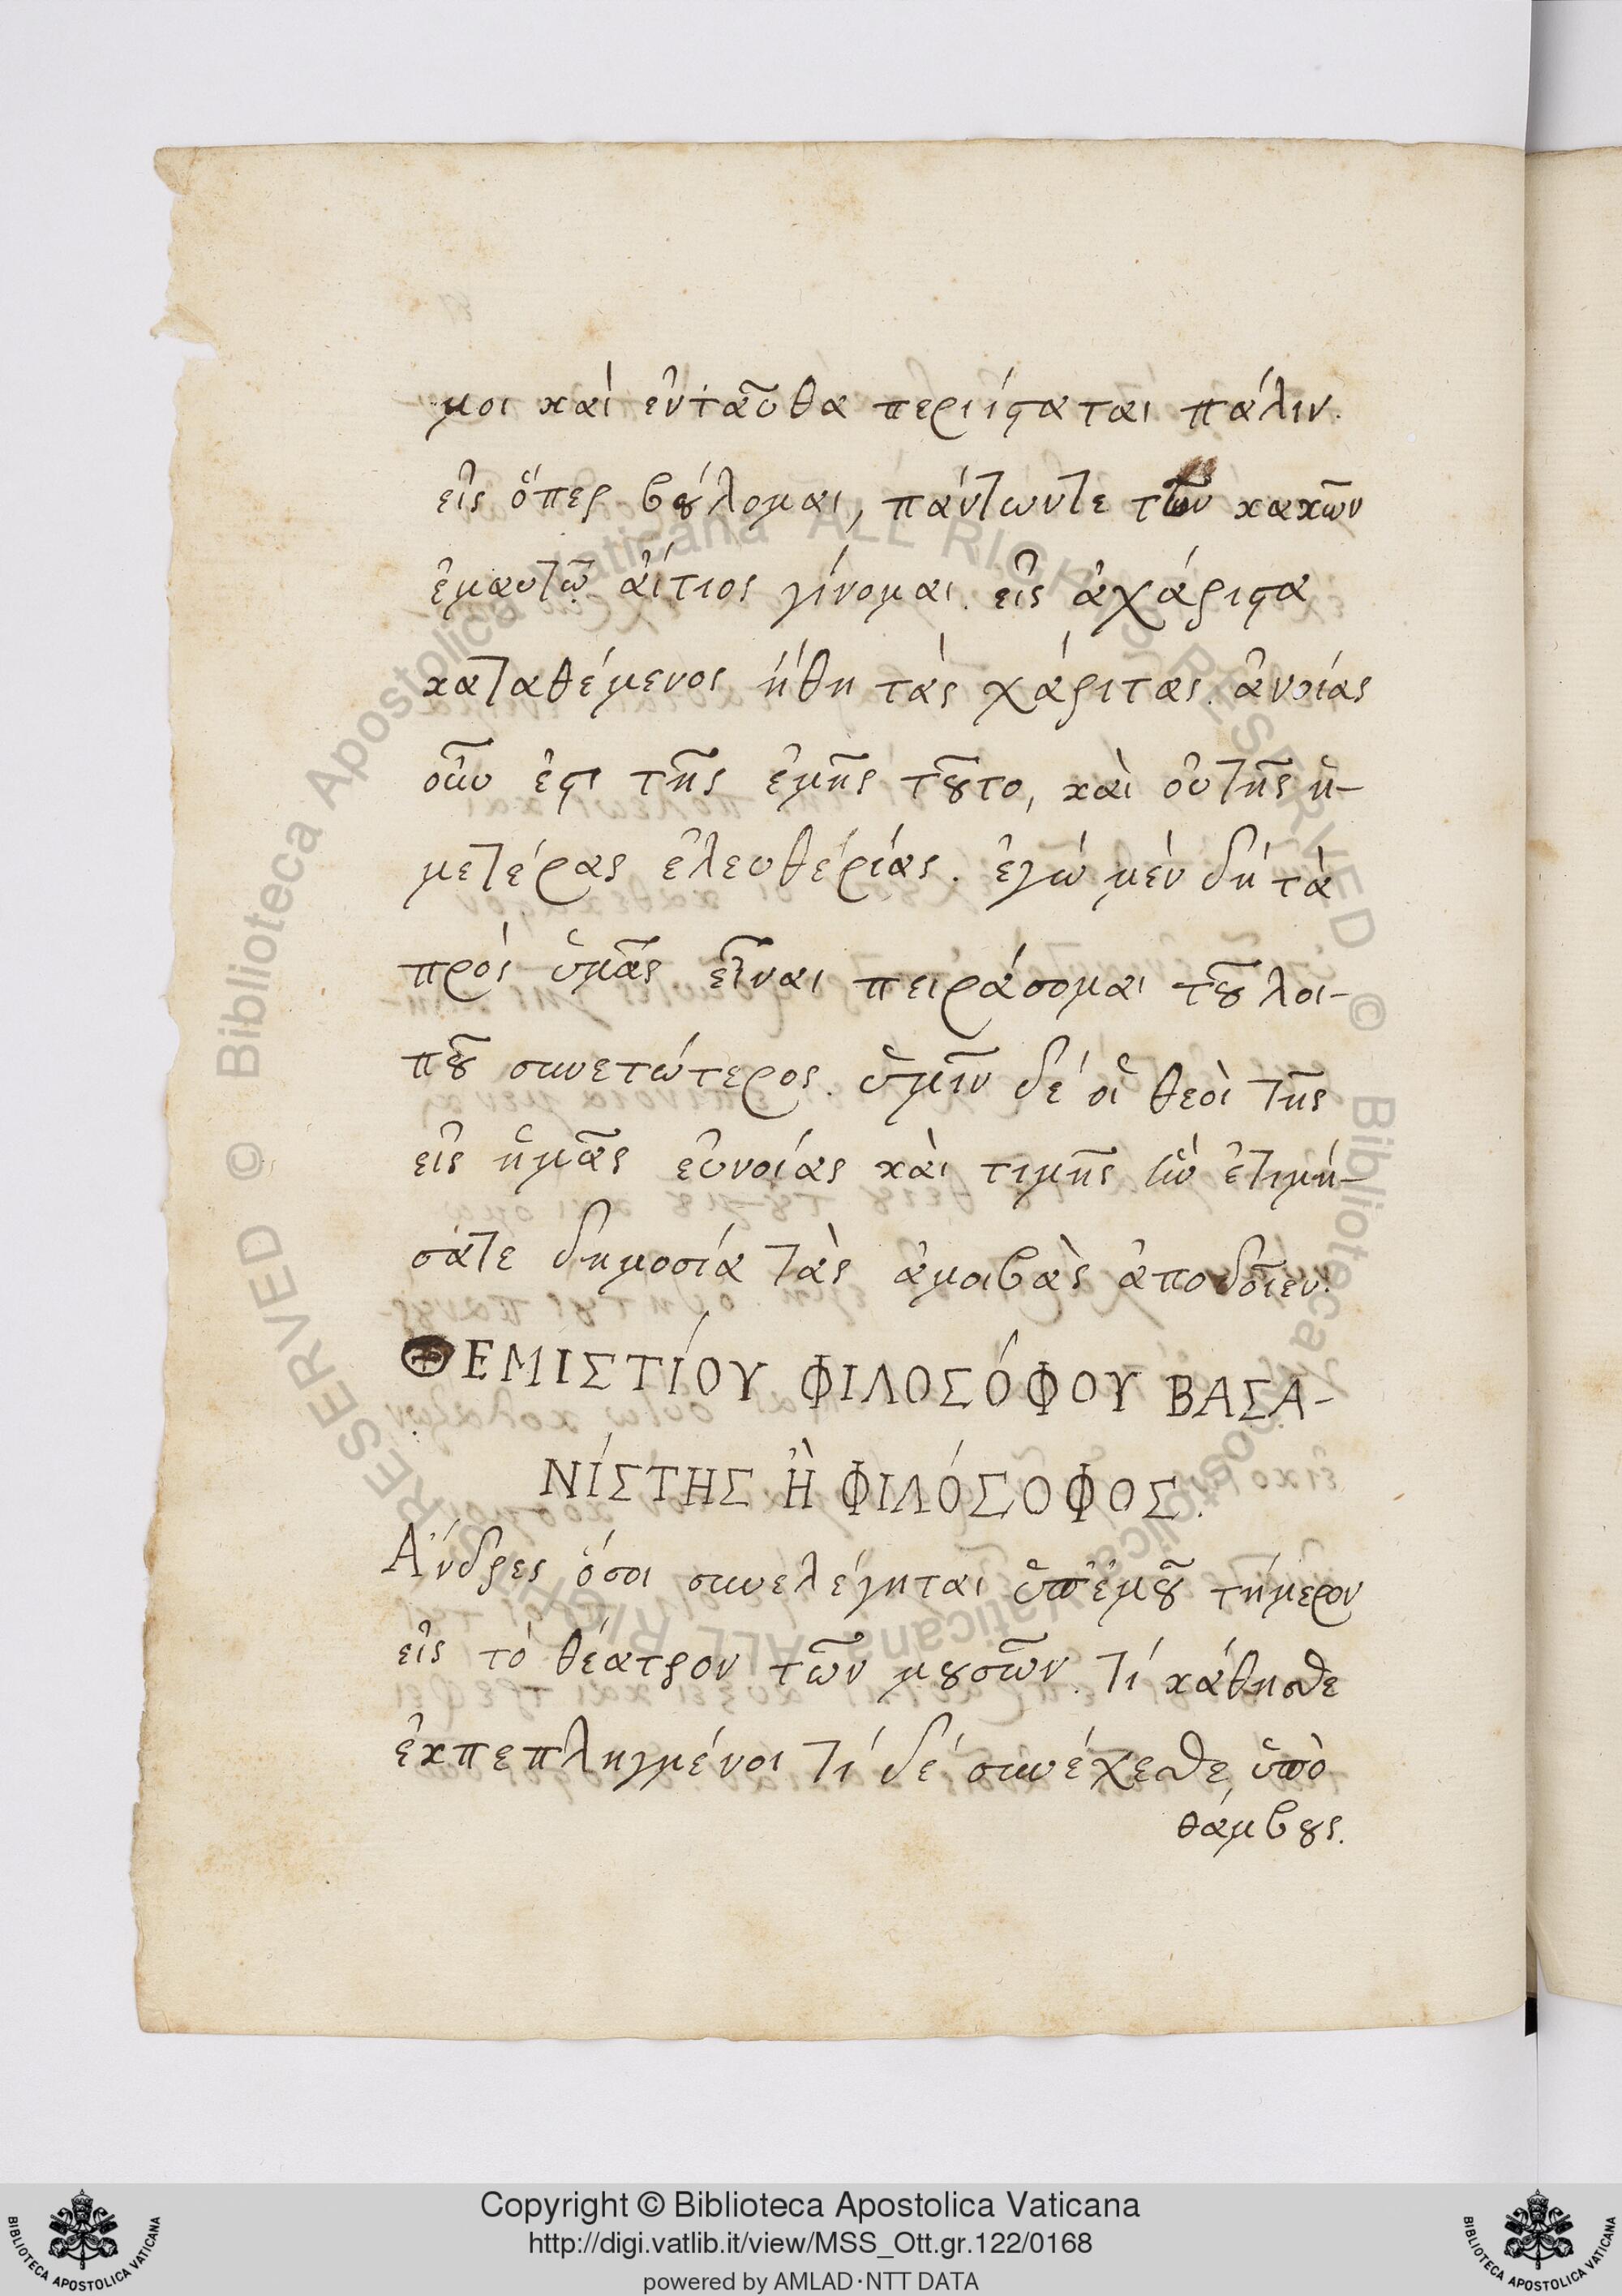 μοι καὶ ἐνταῦθα περιίσταται πάλιν.
εἰς ὅπερ βούλομαι, πάντωντε τῶν κακῶν
ἐμαυτῷ αἴτιος γίνομαι. εἰς ἀχάριστα
καταθέμενος ἤθη τὰς χάριτας. ἀνοίας
οὖν ἐστι τῆς ἐμῆς τοῦτο, καὶ οὐ τῆς ἡ-
μετέρας ἐλευθερίας. ἐγὼ μὲν δὴ τὰ
πρὸς ὑμᾶς εἶναι πειράσομαι τοῦ λοι-
ποῦ συνετώτερος. ὑμῖν δέ οἱ θεοὶ τῆς
εἰς ἡμᾶς εὐνοίας καὶ τιμῆς ἣν ἐτιμή-
σατε δημοσία τὰς ἀμοιβὰς ἀποδοῖεν.
ΘΕΜΙΣΤΊΟΥ ΦΙΛΟΣΌΦΟΥ ΒΑΣΑ-
ΝΊΣΤΗΣ Ἢ ΦΙΛΌΣΟΦΟΣ.
Ἄνδρες ὅσοι συνελέγηται ὑπ' ἐμοῦ τήμερον
εἰς τὸ θέατρον τῶν μουσῶν. τί κάθησθε
ἐκπεπληγμένοι τί δέ συνέχεσθε ὑπὸ
θάμβους.
Copyright © Biblioteca Apostolica Vaticana
http://digi.vatlib.it/view/MSS_Ott.gr.122/0168
powered by AMLAD·NTT DATA
BIBLIOTECA APOSTOLICA VATICANA
BIBLIOTECA APOSTOLICA VATICANA